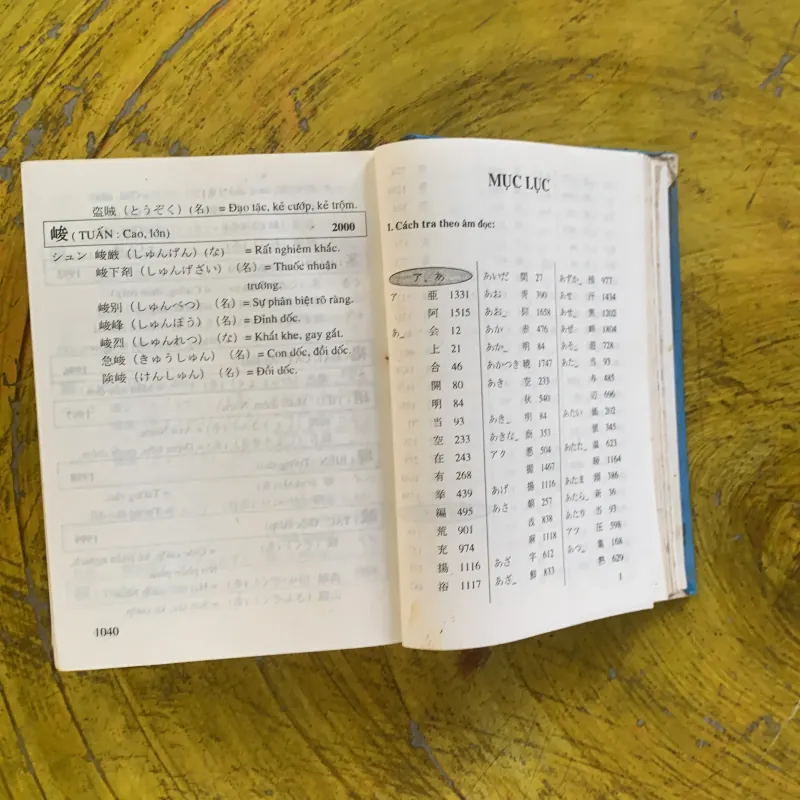 盗賊 (とうぞく) (名) = Đạo tặc, kẻ cướp, kẻ trộm.
峻 ( TUẤN : Cao, lớn) 2000
シュン 峻厳 (しゅんげん) (な) = Rất nghiêm khắc.
峻下剤 (しゅんげざい) (名) = Thuốc nhuận
trường.
峻別 (しゅんべつ) (名) = Sự phân biệt rõ ràng.
峻峰 (しゅんぽう) (名) = Đỉnh dốc.
峻烈 (しゅんれつ) (な) = Khắt khe, gay gắt.
急峻 (きゅうしゅん) (名) = Con dốc, đồi dốc.
険峻 (けんしゅん) (名) = Đồi dốc.
1040
MỤC LỤC
1. Cách tra theo âm đọc:
ア、あ
ア 亜 1331
阿 1515
あ_ 会 12
上 21
合 46
開 80
明 84
当 93
空 233
在 243
有 268
挙 439
編 495
荒 901
充 974
揚 1116
浴 1117
あいだ 間 27
あお 青 390
あお_ 仰 1658
あか 赤 476
あか_ 明 84
あかつき 暁 1747
あき 空 233
秋 540
あき_ 明 84
あきな_ 商 353
アク 悪 504
握 1467
あげ 揚 1116
あさ 朝 257
浅 838
麻 1118
あざ 字 612
あざ_ 鮮 833
あずか_ 預 977
あせ 汗 1434
あせ_ 焦 1202
あぜ 畔 1804
あそ_ 遊 728
あた_ 当 93
与 485
辺 696
あたい 価 202
値 345
あたた_ 温 623
暖 1164
あたま 頭 386
あたら_ 新 36
あたり 当 93
アツ 圧 598
あつ_ 集 168
熱 629
1